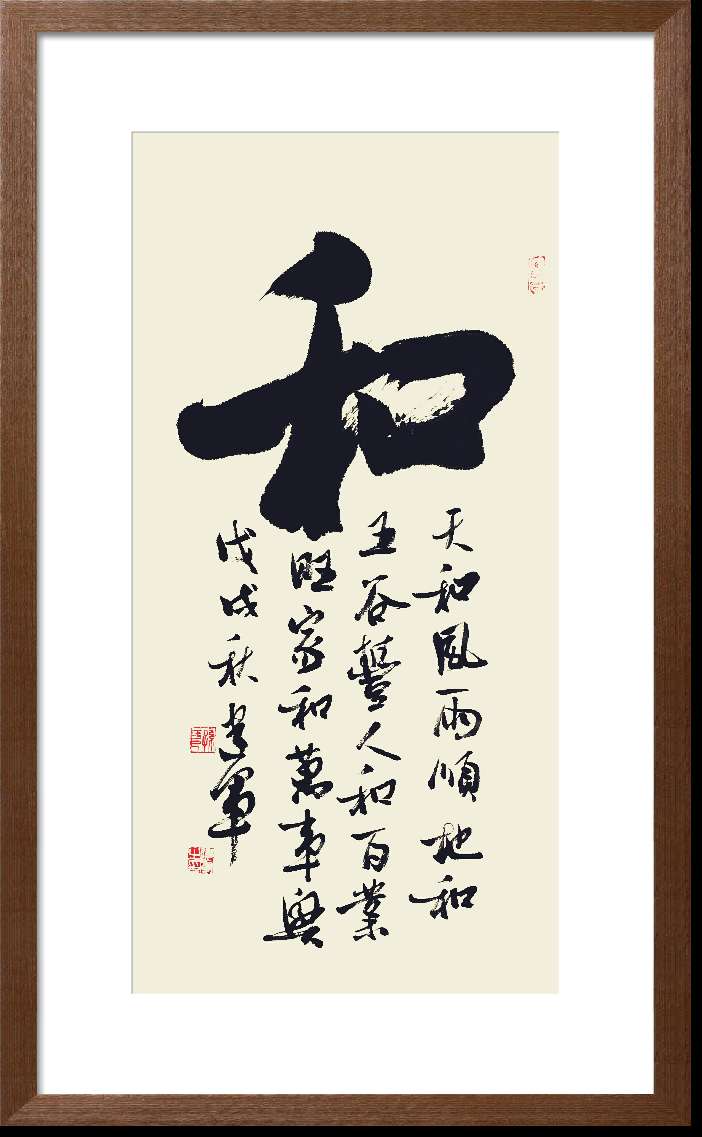 和
天和風雨順地和
五谷豐人和百業
旺家和萬事興
戊戌秋建軍